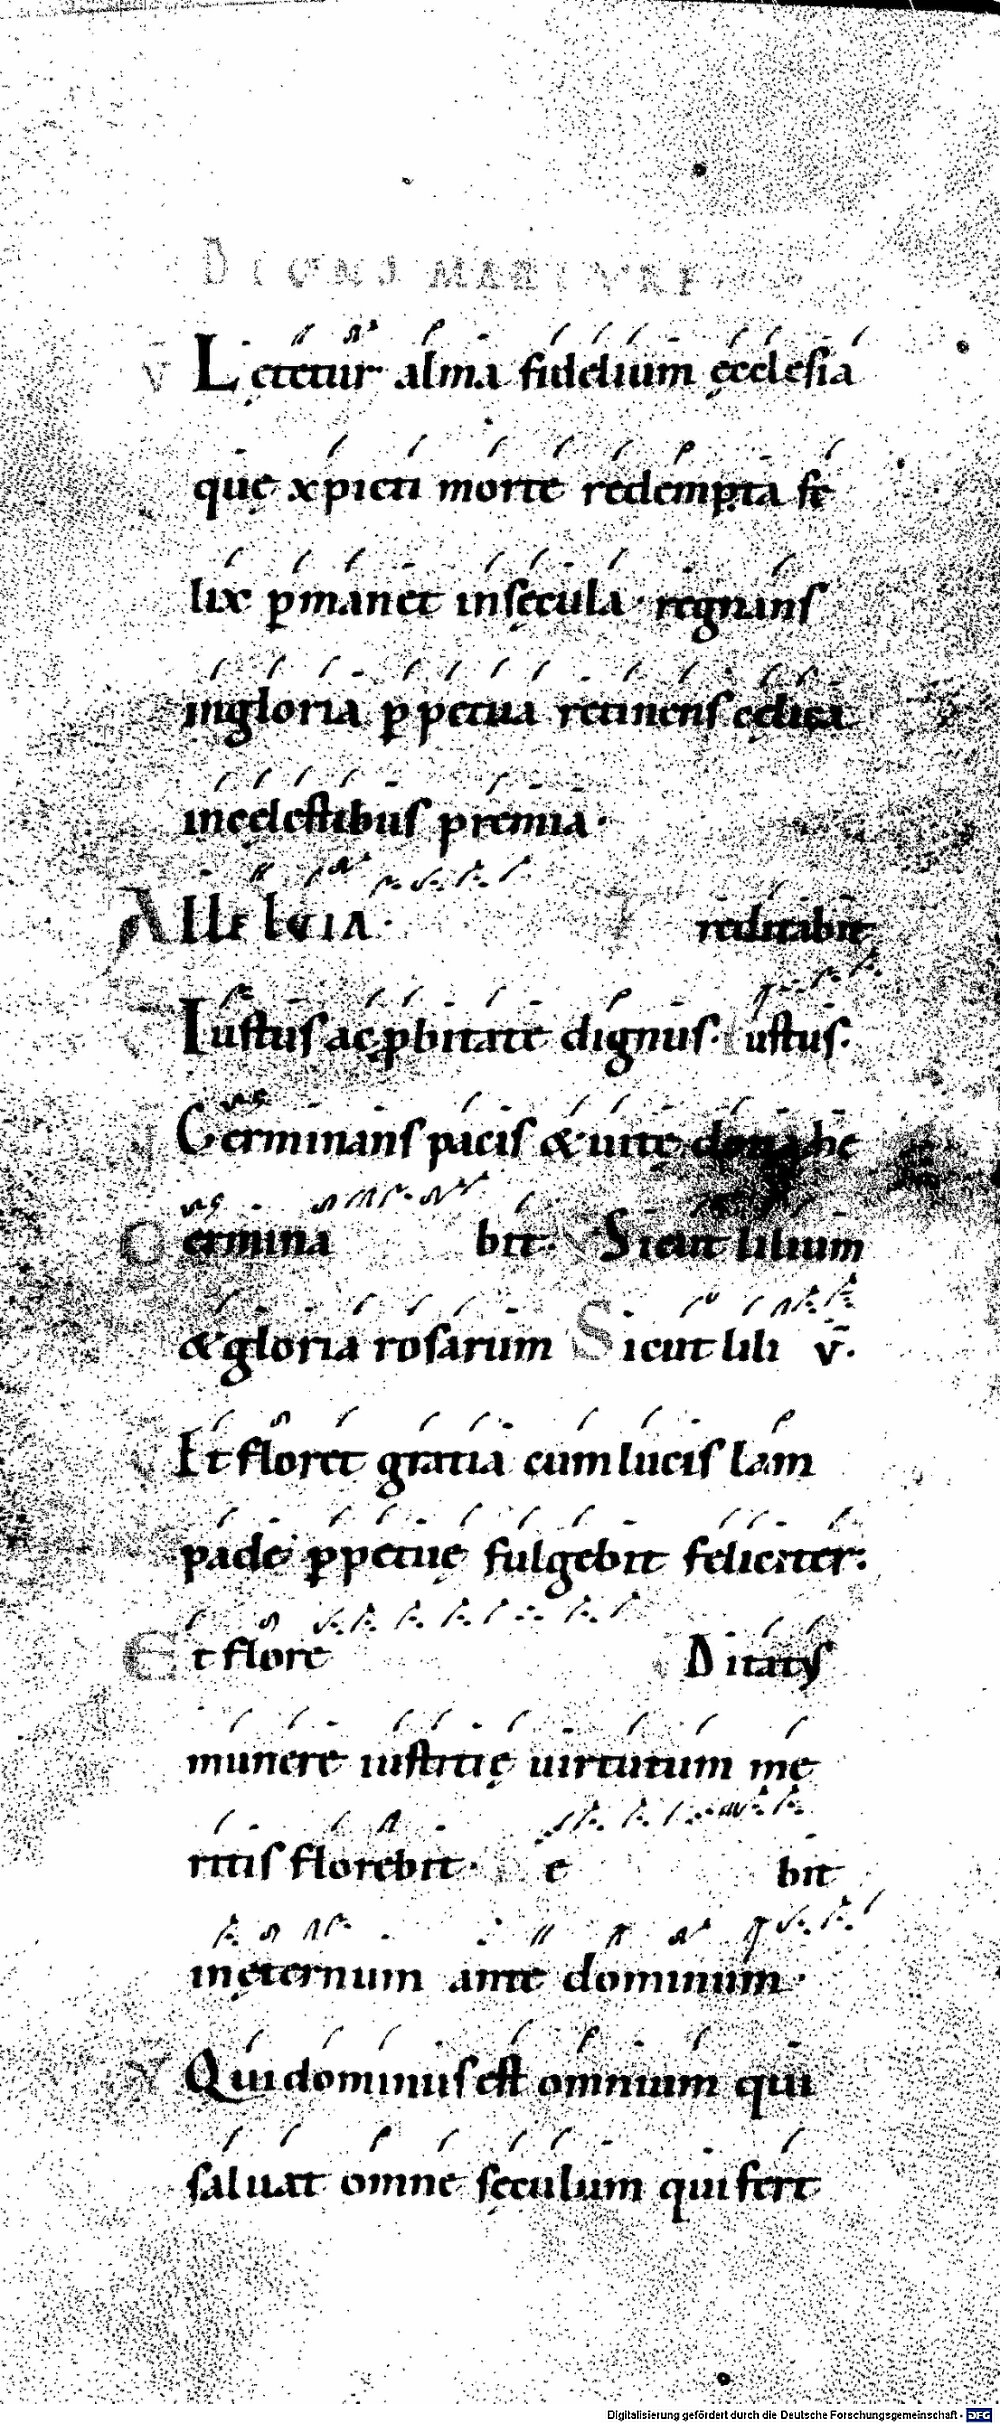 DIGNI MARTYRI
V Lętetur alma fidelium ęcclesia
quę xpicti morte redempta fe
lix p̱manet insęcula· regnans
ingloria p̱petua retinens cęlica
incęlestibus premia·
AlleluIA· reditabit
Iustus acp̱bitate dignus· iustus·
Germinans pacis & uitę dona he
Germina bit· Sicut lilium
& gloria rosarum Sicut lili v̄·
Et floret gratia cum lucis lam
pade p̱petuę fulgebit feliciter·
Et flore Ditatus
munere iustitię uirtutum me
ritis florebit· e bit
inęternum ante dominum·
V Qui dominus est omnium qui
saluat omne sęculum qui fert
Digitalisierung gefördert durch die Deutsche Forschungsgemeinschaft - DFG